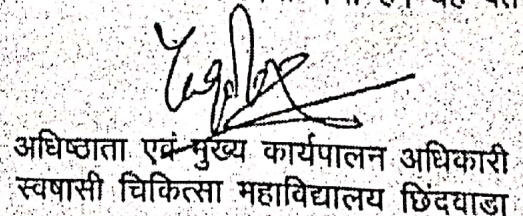 यह
अधिष्ठाता एवं मुख्य कार्यपालन अधिकारी
स्वषासी चिकित्सा महाविद्यालय छिंदवाडा